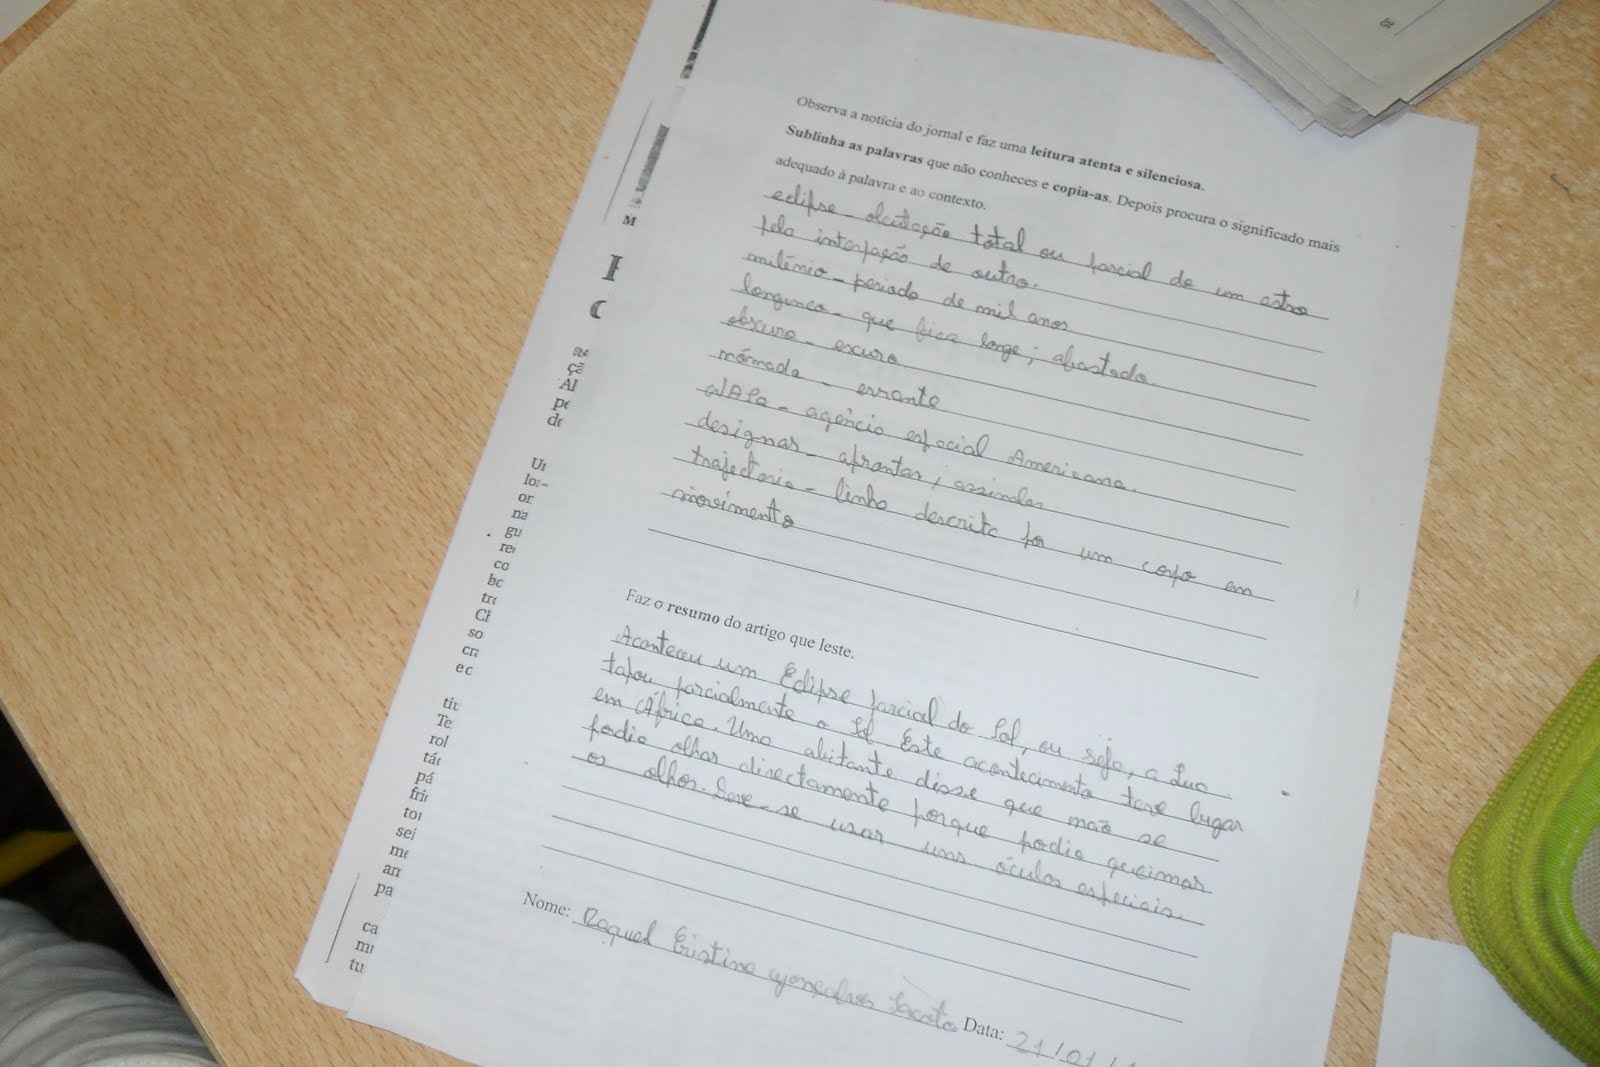 Observa a notícia do jornal e faz uma leitura atenta e silenciosa.
Sublinha as palavras que não conheces e copia-as. Depois procura o significado mais
adequado à palavra e ao contexto.
eclipse - olcutação total ou parcial de um astro
pela interpação de outro.
milénio - periodo de mil anos
longinco - que fica longe; afastado.
obscuro - escuro
nómada - errante
NASA - agência espacial Americana.
designar - apontar; assinalar
trajectoria - linha descrita por um corpo em
movimento
Faz o resumo do artigo que leste.
Aconteceu um Eclipse parcial do Sol, ou seja, a Lua
tapou parcialmente o Sol. Este acontecimento teve lugar
em África. Uma abitante disse que não se
podia olhar directamente porque podia queimar
os olhos. Deve-se usar uns óculos especiais.
Nome: Raquel Cristina Gonçalves Data: 21/01/
M
Al
pe
do
Ur
or
na
gu
co
bo
so
e c
Te
rol
pá
tou
sei
an
pa
ca
tu